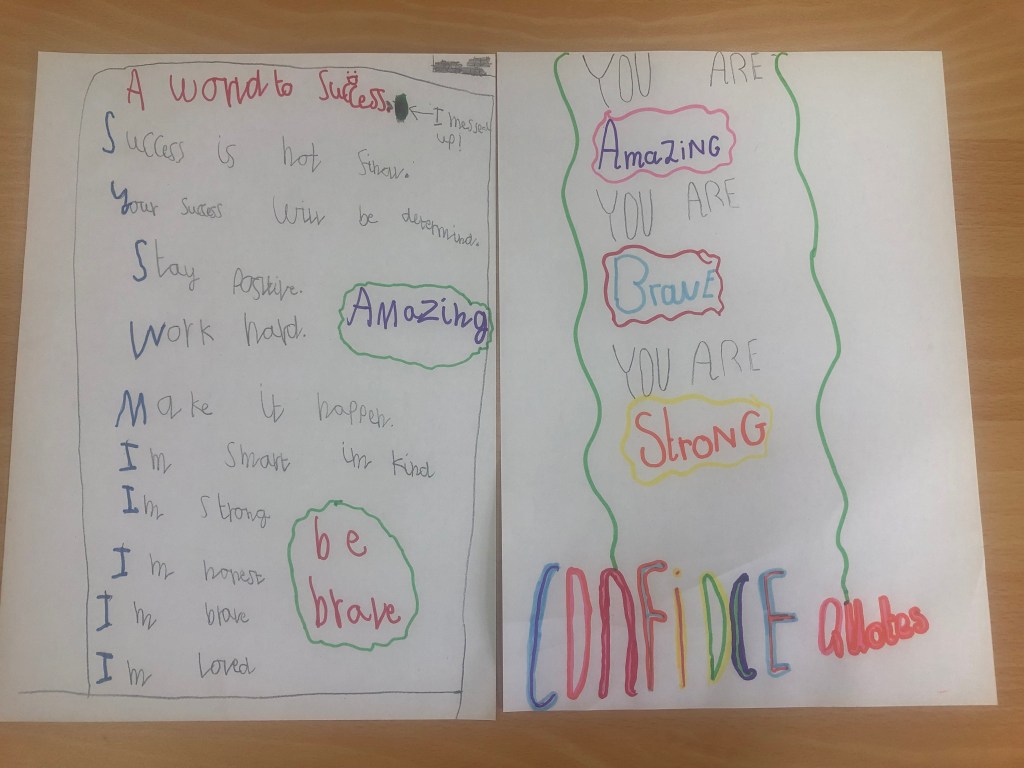 A word to Success.
I messed up!
Success is not final.
Your Success Will be determind.
Stay Positive.
Work hard.
Amazing
Make it happen.
Im Smart im kind
Im Strong
be brave
Im honest
Im brave
Im Loved
YOU ARE
AmaZiNG
YOU ARE
BravE
YOU ARE
StroNG
CONFiDCE
Quotes